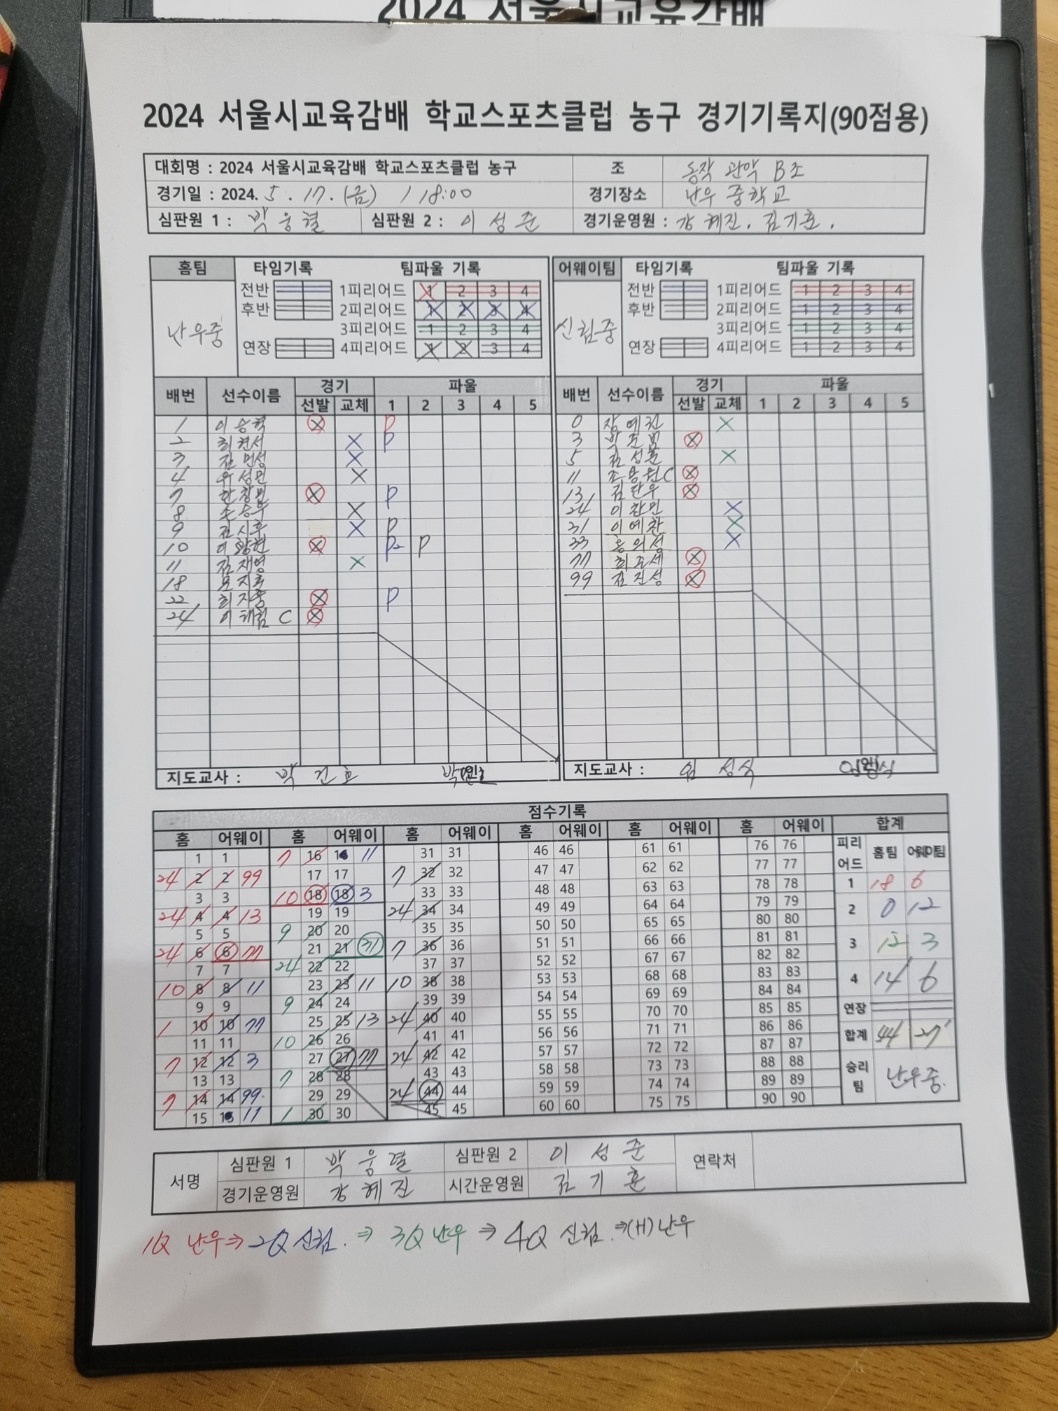 2024 서울시교육감배
2024 서울시교육감배 학교스포츠클럽 농구 경기기록지(90점용)
대회명 : 2024 서울시교육감배 학교스포츠클럽 농구 조 동작 관악 B조
경기일 : 2024. 5. 17. (금) / 18:00 경기장소 난우 중학교
심판원 1 : 박웅렬 심판원 2 : 이성준 경기운영원 : 강혜진, 김기훈.
홈팀 타임기록 팀파울 기록 어웨이팀 타임기록 팀파울 기록
전반 1피리어드 1 2 3 4 전반 1피리어드 1 2 3 4
후반 2피리어드 1 2 3 4 후반 2피리어드 1 2 3 4
난우중 3피리어드 1 2 3 4 신림중 3피리어드 1 2 3 4
연장 4피리어드 1 2 3 4 연장 4피리어드 1 2 3 4
배번 선수이름 경기 파울 배번 선수이름 경기 파울
선발 교체 1 2 3 4 5 선발 교체 1 2 3 4 5
1 이승혁 P 0
2 최현서 P 3
3 김민성 5
4 11 C
7 P 13 김단우
8 24
9 김시후 P 31 이예찬
10 P2 P 33
11 김재영 77
18 99 김진성
22 최지웅 P
24 C
지도교사 : 박진호 (인) 지도교사 : 임성식 (인)
점수기록
홈 어웨이 홈 어웨이 홈 어웨이 홈 어웨이 홈 어웨이 홈 어웨이 합계
1 1 7 16 16 11 31 31 46 46 61 61 76 76 피리어드 홈팀 어웨이팀
24 2 2 99 17 17 7 32 32 47 47 62 62 77 77
3 3 10 18 18 3 33 33 48 48 63 63 78 78 1 18 6
24 4 4 13 19 19 24 34 34 49 49 64 64 79 79
5 5 9 20 20 35 35 50 50 65 65 80 80 2 0 12
24 6 6 77 21 21 31 7 36 36 51 51 66 66 81 81
7 7 24 22 22 37 37 52 52 67 67 82 82 3 12 3
10 8 8 11 23 23 11 10 38 38 53 53 68 68 83 83
9 9 9 24 24 39 39 54 54 69 69 84 84 4 14 6
1 10 10 77 25 25 13 24 40 40 55 55 70 70 85 85
11 11 10 26 26 41 41 56 56 71 71 86 86 연장
7 12 12 3 27 27 77 24 42 42 57 57 72 72 87 87 합계 44 27
13 13 7 28 28 43 43 58 58 73 73 88 88
7 14 14 99 29 29 24 44 44 59 59 74 74 89 89 승리팀 난우중.
15 15 11 1 30 30 45 45 60 60 75 75 90 90
서명 심판원 1 박웅렬 심판원 2 이성준 연락처
경기운영원 강혜진 시간운영원 김기훈
1Q 난우⇒2Q 신림. ⇒ 3Q 난우 ⇒ 4Q 신림. ⇒(H) 난우